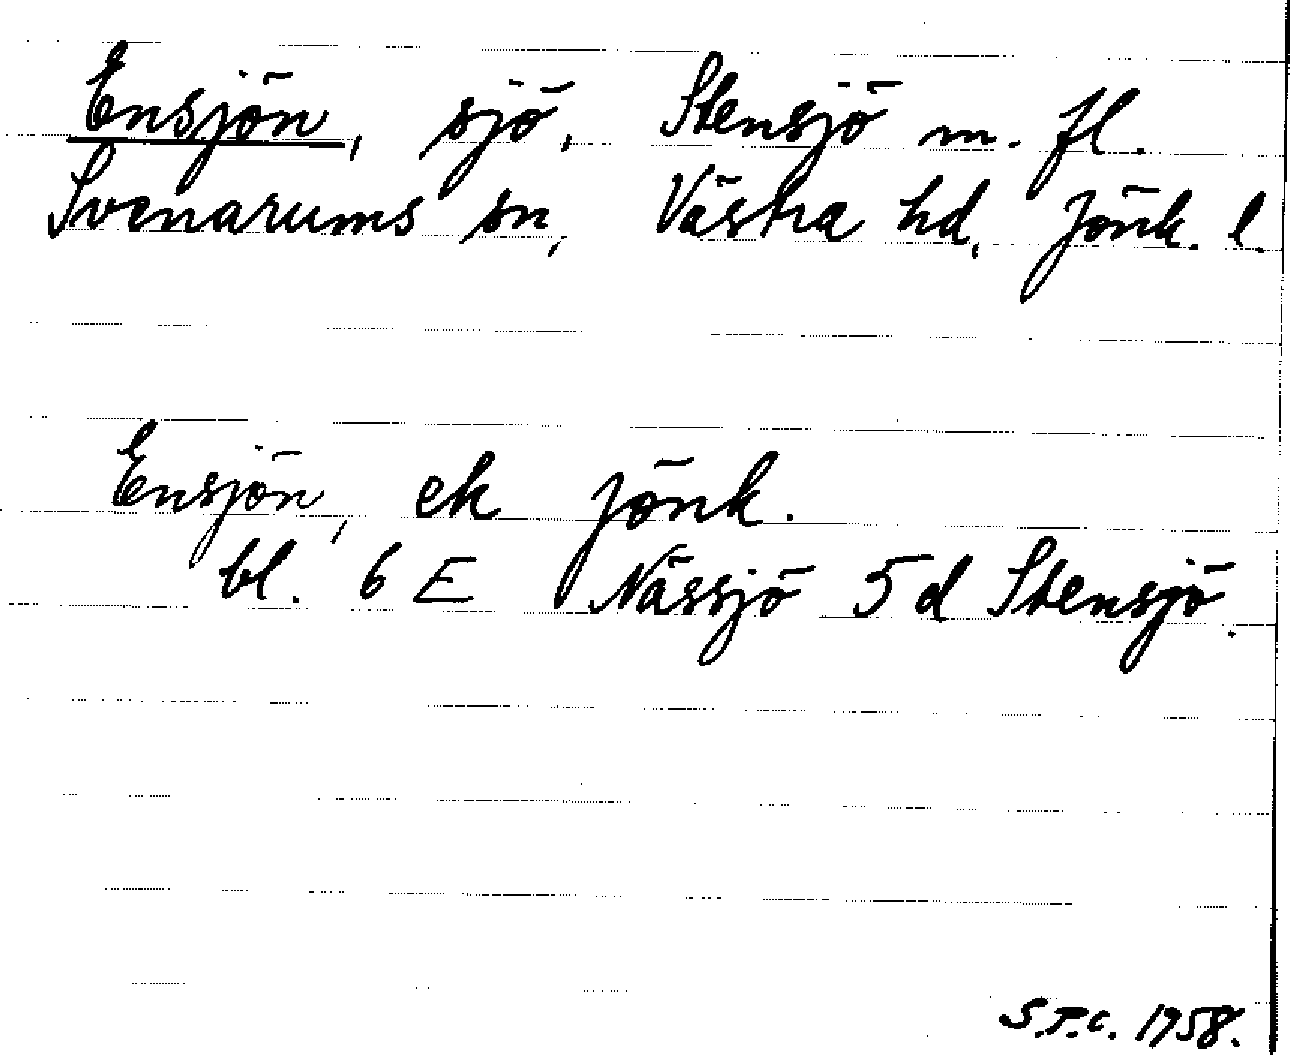 Ensjön, sjö, Stensjö m. fl.
Svenarums sn, Västra hd, Jönk. l.
Ensjön, ek Jönk.
bl. 6 E Nässjö 5 d Stensjö.
S.T.C. 1958.